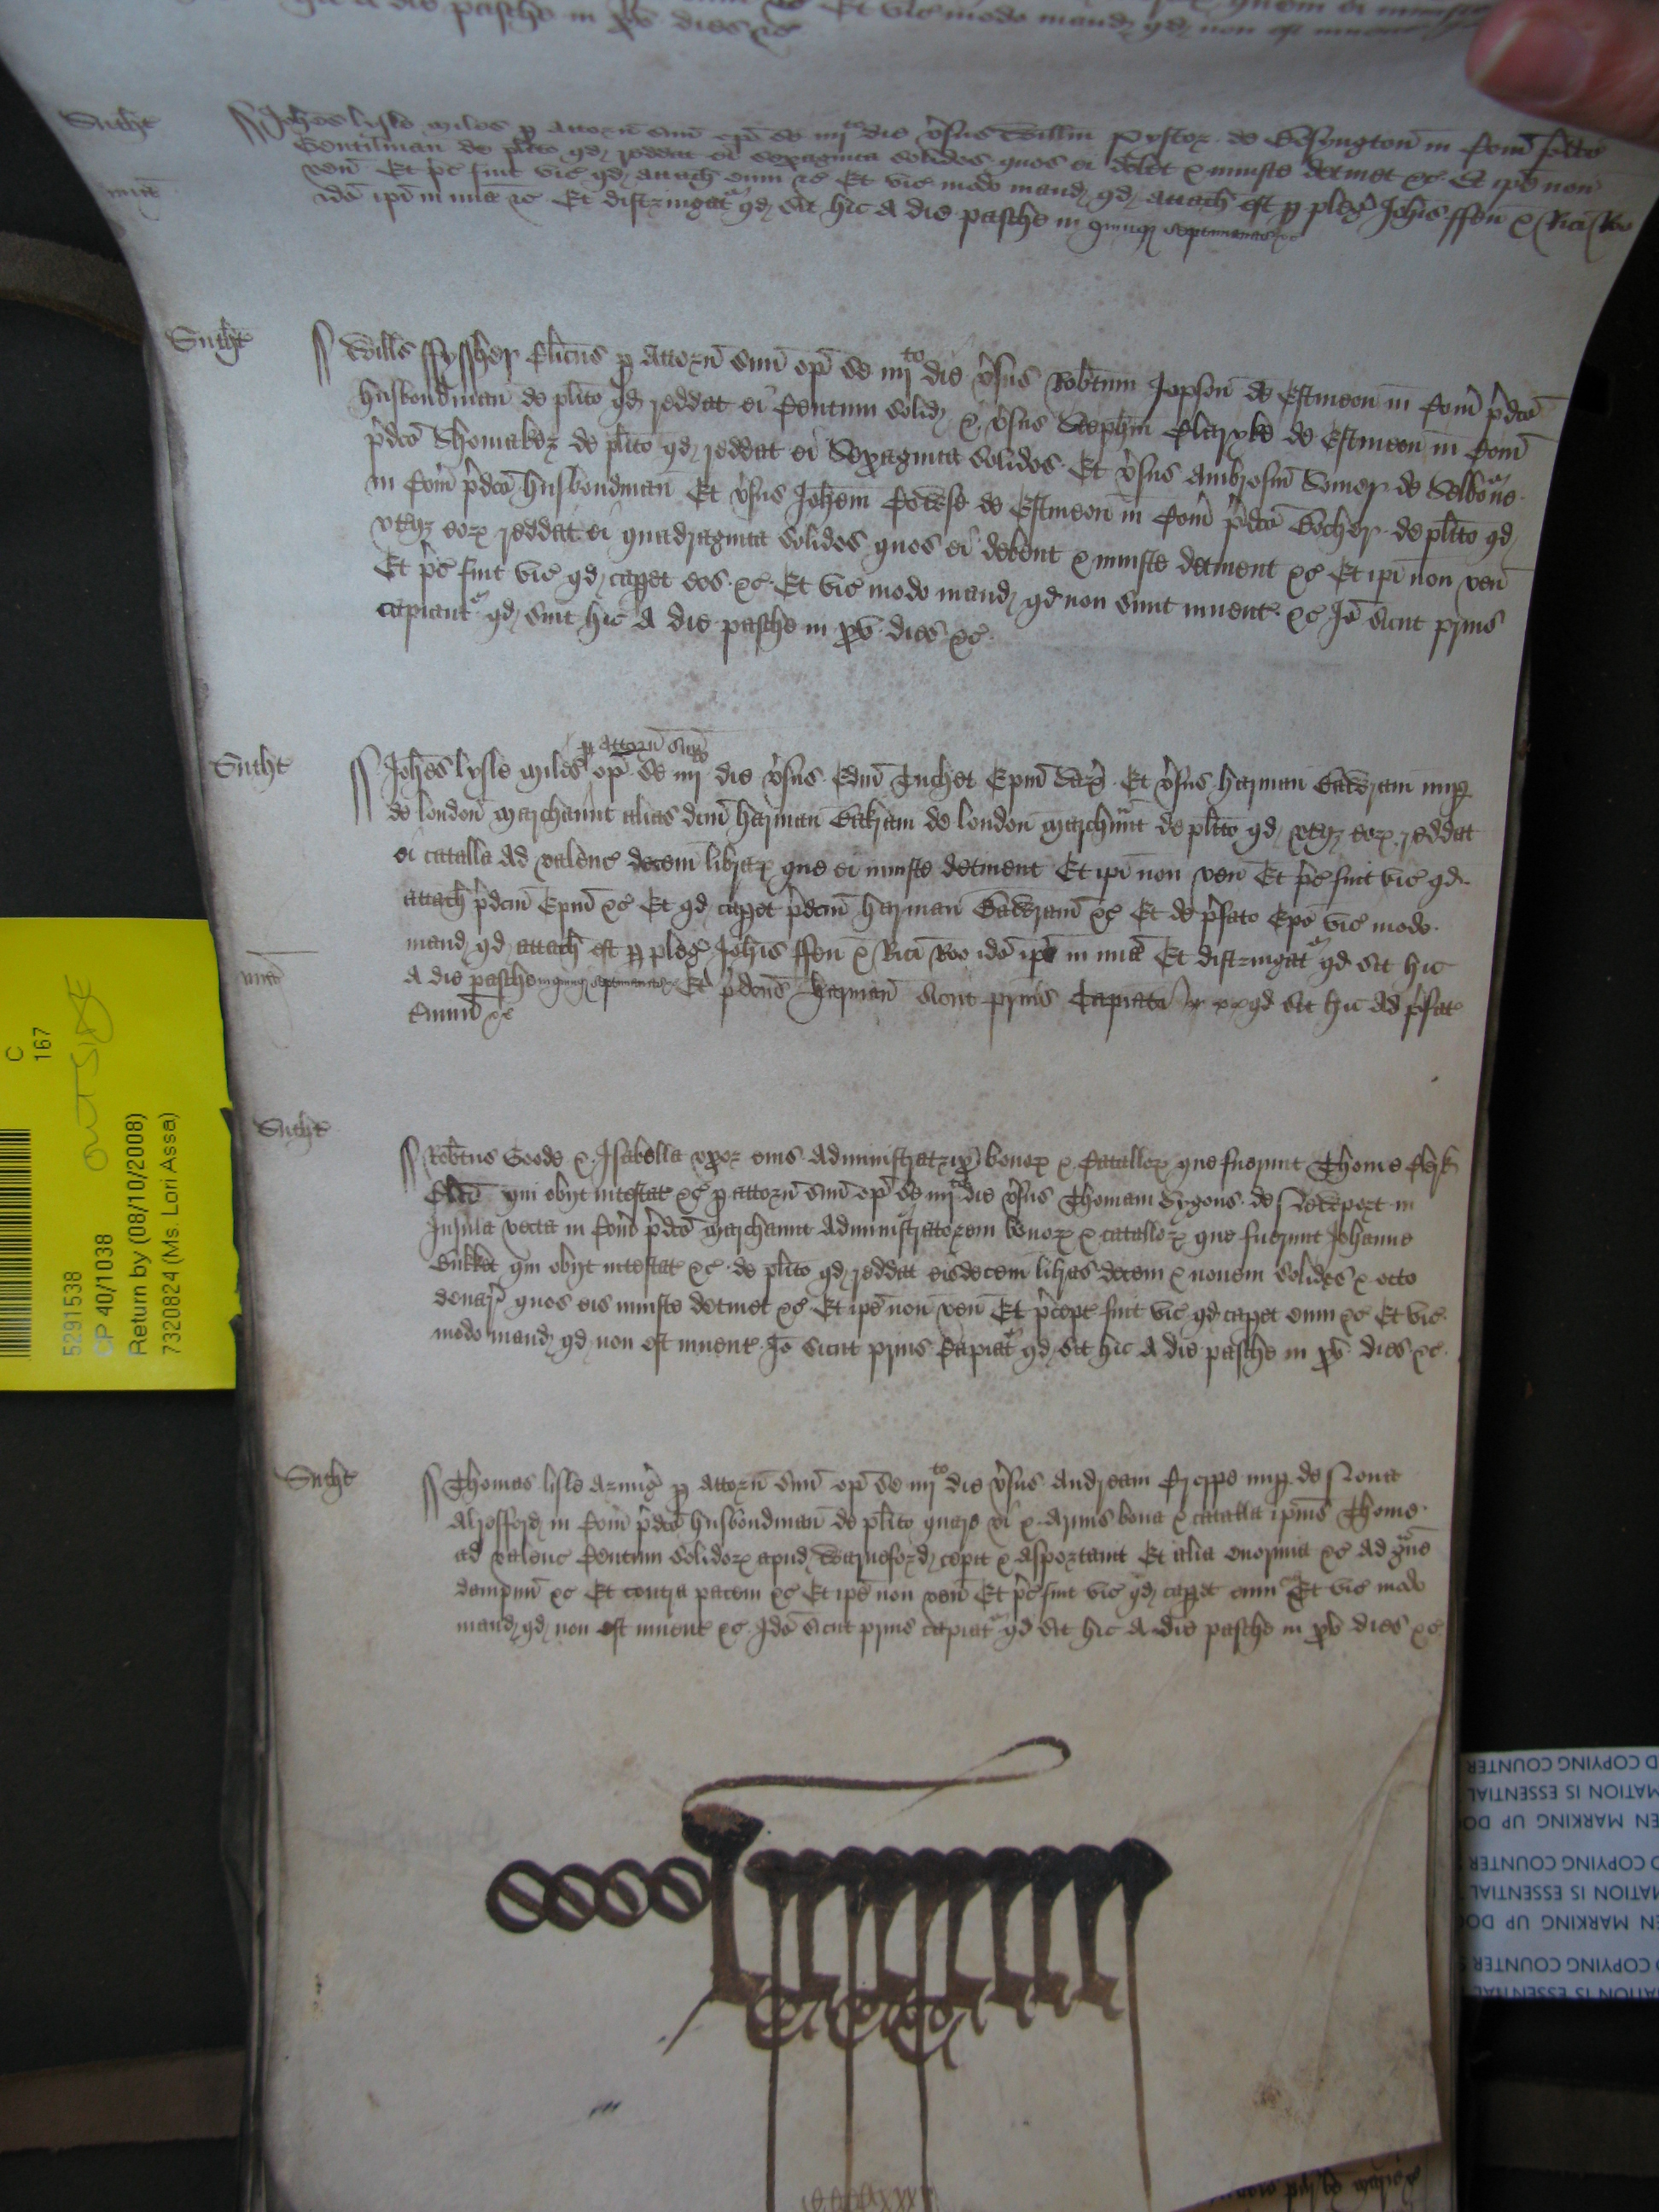 a die pasche in xv dies &c Et vic modo mand qd non est invent
Sutht
Johes lysle miles p attorn suu op se iiijto die vsus Willm Pystor de Chesyngton in Com pdco
Gentilman de plito qd reddat ei sexaginta solidos quos ei debet & iniuste detinet &c Et ipe non
ven Et pc fuit vic qd attach eum &c Et vic modo mand qd attach est p pleg Johis ffen & Rici Roo
mia
ido ipe in mia &c Et distringat qd sit hic a die pasche in quinq septimanas &c
Sutht
Wills ffyssher clicus p attorn suu op se iiijto die vsus Robtum Jopson de Estmeon in Com pdco
husbondman de plito qd reddat ei Centum solid & vsus Stephm Clarke de Estmeon in Com
pdco Shomaker de plito qd reddat ei Sexaginta solidos Et vsus Ambrosiu Somer de Selborne
in Com pdco husbondman Et vsus Johem Cowese de Estmeon in Com pdco Bocher de plito qd
vtqz eorz reddat ei quadraginta solidos quos ei debent & iniuste detinent &c Et ipi non ven
Et pc fuit vic qd capet eos &c Et vic modo mand qd non sunt invent &c Jo sicut prius
capiant qd sint hic a die pasche in xv dies &c
Sutht
p attorn suu
Johes lysle miles op se iiijto die vsus Edm Tuchet Epm Et vsus harman Bawram nup
de london marchaunt alias dcm harman Bakram de london marchunt de plito qd vtqz eorz reddat
ei catalla ad valenc decem librarz que ei iniuste detinent Et ipi non ven Et pc fuit vic qd
attach pdcm Epm &c Et qd capet pdcm harman Bawram &c Et de pfato Epo vic modo
mand qd attach est p pleg Johis ffen & Rici Roo ido ipe in mia Et distringat qd sit hic
mia
a die pasche in quinq septimanas &c Et pdcus harman sicut prius Capiat qd sit hic ad pfat
tminu &c
Sutht
Robtus Goode & Isabella vxor eius Administratrix bonorz & Catallorz que fuerunt Thome Clerk
qui obijt intestat &c p attorn suu op se iiijto die vsus Thomam Sygons de Neweport in
Insula vecta in Com pdco marchaunt Administratorem bonorz & catallorz que fuerunt Johanne
Bukket qui obijt intestat &c de plito qd reddat eis decem libras decem & novem solidos & octo
denar quos eis iniuste detinet &c Et ipe non ven Et pcept fuit vic qd capet eum &c Et vic
modo mand qd non est invent Jo sicut prius Capiat qd sit hic a die pasche in xv dies &c
Sutht
Thomas lisle armig p attorn suu op se iiijto die vsus Andream Creppe nup de Noua
Alresford in Com pdco husbondman de plito quare vi & armis bona & catalla ipius Thome
ad valenc Centum solidorz apud Warneford cepit & asportauit Et alia enormia &c Ad gue
dampnu &c Et contra pacem &c Et ipe non ven Et pc fuit vic qd capet eum Et vic modo
mand qd non est invent &c Ido sicut prius capiat qd sit hic a die pasche in xv dies &c
C
167
OUTSIDE
5291538
CP 40/1038
Return by (08/10/2008)
7320824 (Ms. Lori Assa)
D COPYING COUNTER
MATION IS ESSENTIAL
EN MARKING UP DOC
D COPYING COUNTER
MATION IS ESSENTIAL
EN MARKING UP DOC
D COPYING COUNTER
ATION IS ESSENTIAL